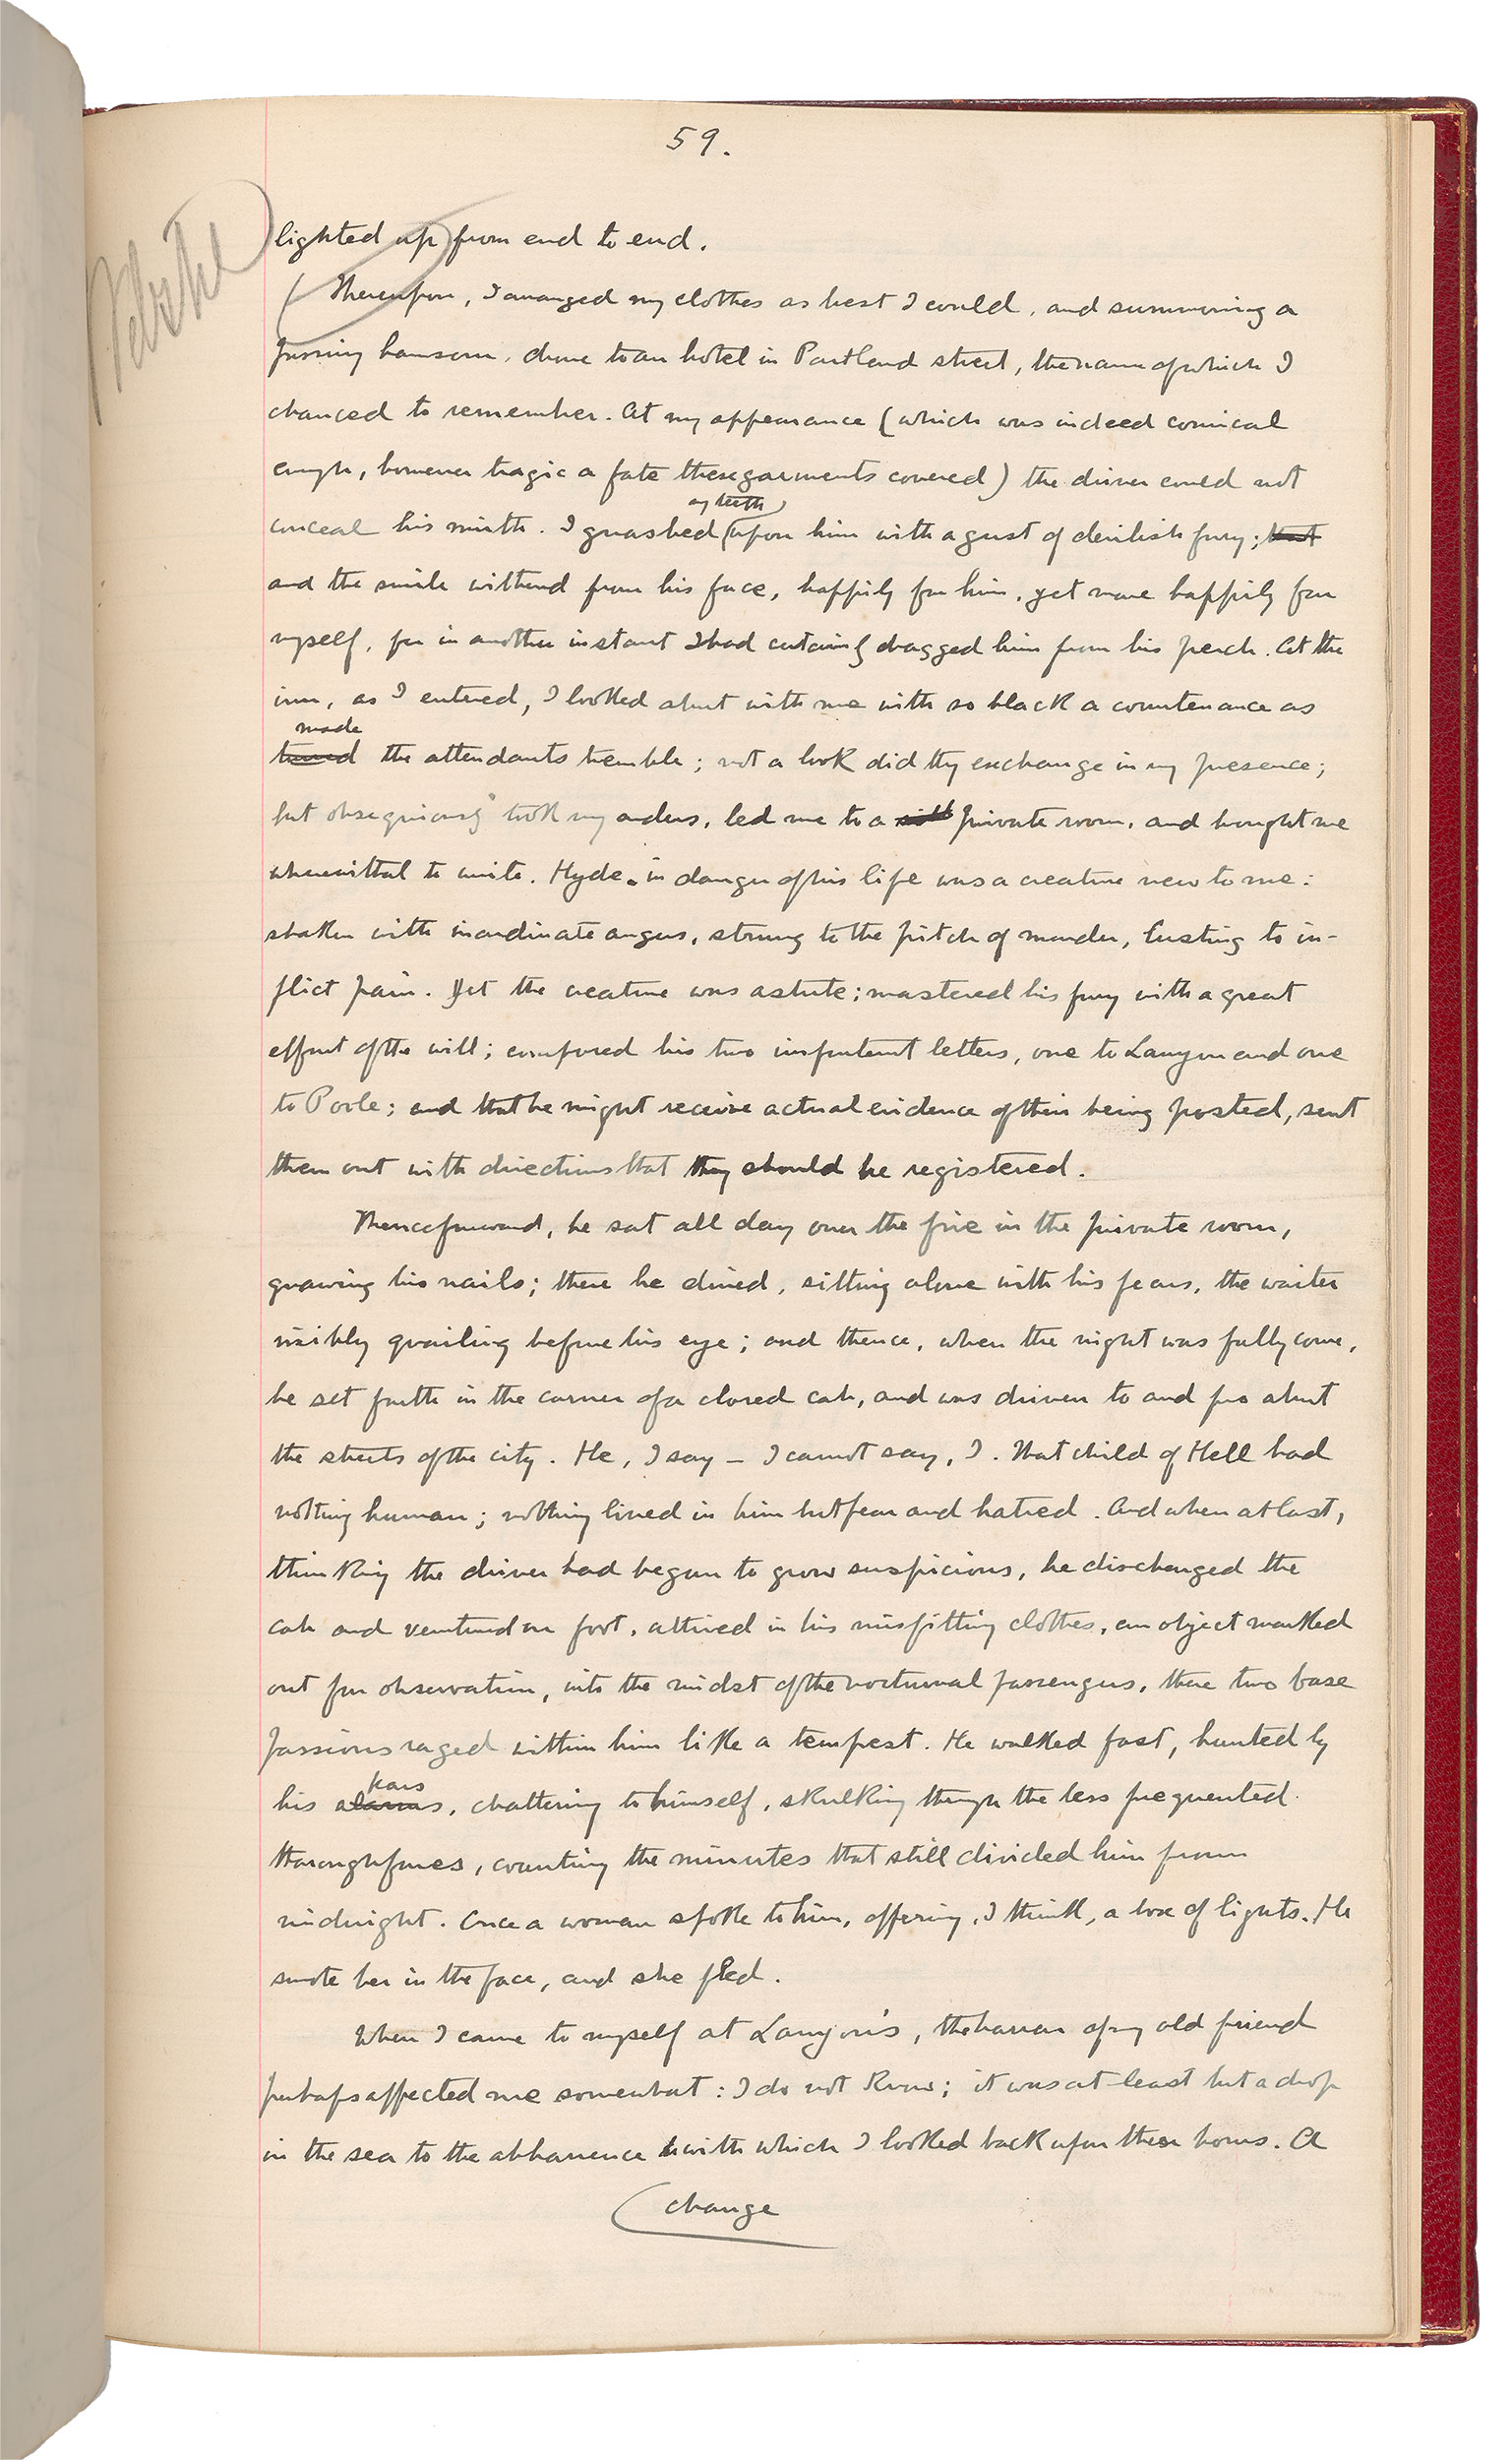 59.
lighted up from end to end.
( Thereupon, I arranged my clothes as best I could, and summoning a
passing hansom, drove to an hotel in Portland street, the name of which I
chanced to remember. At my appearance (which was indeed comical
enough, however tragic a fate these garments covered) the driver could not
my teeth
conceal his mirth. I gnashed upon him with a gust of devilish fury; but
and the smile withered from his face, happily for him, yet more happily for
myself, for in another instant I had certainly dragged him from his perch. At the
inn, as I entered, I looked about with me with so black a countenance as
made
the attendants tremble; not a look did they exchange in my presence;
but obsequiously took my orders, led me to a private room, and brought me
wherewithal to write. Hyde in danger of his life was a creature new to me:
shaken with inordinate anger, strung to the pitch of murder, lusting to in-
flict pain. Yet the creature was astute; mastered his fury with a great
effort of the will; composed his two important letters, one to Lanyon and one
to Poole; and that he might receive actual evidence of their being posted, sent
them out with directions that they should be registered.
Thenceforward, he sat all day over the fire in the private room,
gnawing his nails; there he dined, sitting alone with his fears, the waiter
visibly quailing before his eye; and thence, when the night was fully come,
he set forth in the corner of a closed cab, and was driven to and fro about
the streets of the city. He, I say — I cannot say, I. That child of Hell had
nothing human; nothing lived in him but fear and hatred. And when at last,
thinking the driver had begun to grow suspicious, he discharged the
cab and ventured on foot, attired in his misfitting clothes, an object marked
out for observation, into the midst of the nocturnal passengers, these two base
passions raged within him like a tempest. He walked fast, hunted by
fears
his alarms, chattering to himself, skulking through the less frequented
thoroughfares, counting the minutes that still divided him from
midnight. Once a woman spoke to him, offering, I think, a box of lights. He
smote her in the face, and she fled.
When I came to myself at Lanyon's, the horror of my old friend
perhaps affected me somewhat: I do not know; it was at least but a drop
in the sea to the abhorrence with which I looked back upon these hours. A
change